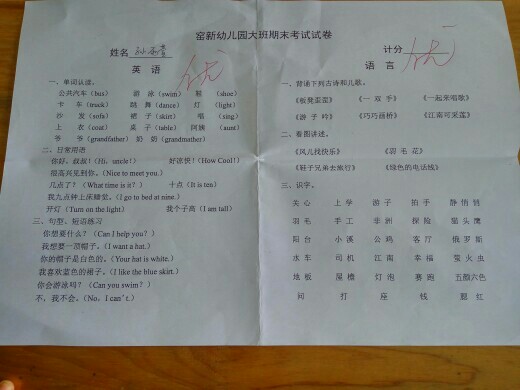 窑新幼儿园大班期末考试试卷
姓名
计分
英 语
优
语 言
优
一、单词认读。
公共汽车（bus） 游 泳（swim） 鞋 （shoe）
卡 车（truck） 跳 舞（dance） 灯 （light）
沙 发（sofa） 裙 子（skirt） 唱 （sing）
上 衣（coat） 桌 子（table） 阿姨 （aunt）
爷 爷（grandfather）奶 奶（grandmother）
二、日常用语
你好，叔叔!（Hi，uncle!） 好凉快!（How Cool!）
很高兴见到你。（Nice to meet you.）
几点了？（What time is it?） 十点（It is ten）
我九点钟上床睡觉。（I go to bed at nine.）
开灯（Turn on the light） 我个子高（I am tall）
三、句型、短语练习
你想要什么?（Can I help you?）
我想要一顶帽子。（I want a hat.）
你的帽子是白色的。（Your hat is white.）
我喜欢蓝色的裙子。（I like the blue skirt.）
你会游泳吗?（Can you swim?）
不，我不会。（No，I can't.）
一、背诵下列古诗和儿歌。
《板凳歪歪》 《一 双 手》 《一起来唱歌》
《游 子 吟》 《巧巧画桥》 《江南可采莲》
二、看图讲述。
《风儿找快乐》 《羽 毛 花》
《鞋子兄弟去旅行》 《绿色的电话线》
三、识字。
关 心 上 学 游 子 拍 手 静 悄 悄
羽 毛 手 工 非 洲 探 险 猫 头 鹰
阳 台 小 溪 公 鸡 客 厅 俄 罗 斯
水 车 司 机 江 南 幸 福 萤 火 虫
地 板 屋 檐 灯 泡 赛 跑 五颜六色
问 打 座 钱 腮 红